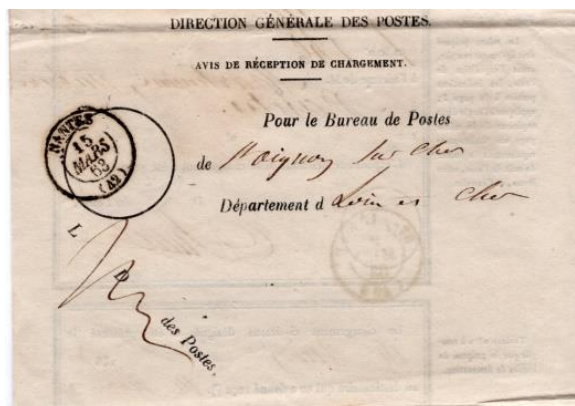 DIRECTION GÉNÉRALE DES POSTES.
AVIS DE RÉCEPTION DE CHARGEMENT.
NANTES
15
MARS
63
(42)
Pour le Bureau de Postes
de St Aignan sur Cher
Département d Loir et Cher
L
D
des Postes.